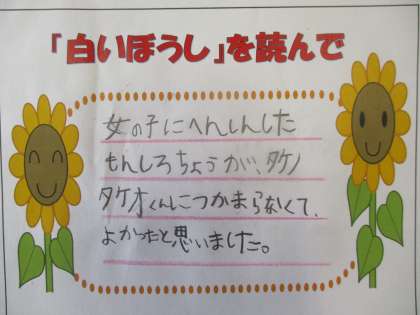 「白いぼうし」を読んで
女の子にへんしんした
もんしろちょうが、タケノ
タケオくんにつかまらなくて、
よかったと思いました。